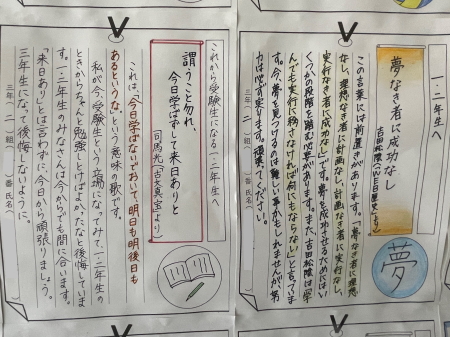 一・二年生へ
夢なき者に成功なし
吉田松陰(WEB歴史より)
この言葉には前置きがあります。「夢なき者に理想
なし、理想なき者に計画なし、計画なき者に実行なし、
実行なき者に成功なし」です。夢を成功させるためにはい
くつかの段階を踏む必要があります。また、吉田松陰は「学
んでも実行に移さなければ何にもならない」と言っていま
す。今、夢を見つけるのは難しい事かもしれませんが、努
力は必ず実ります。頑張ってください。
夢
三年(二)組( )番 氏名(
これから受験生になる一・二年生へ
謂うこと勿れ
今日学ばずして来日ありと
(司馬光「古文真宝」より)
これは、「今日学ばないでおいて、明日も明後日も
あるというな。」という意味の歌です。
私が今、受験生という立場になってみて、一・二年生の
ときからちゃんと勉強しとけばよかったなと後悔していま
す。一・二年生のみなさんは今からでも間に合います。
「来日あり」とは言わずに、今日から頑張りましょう。
三年生になって後悔しないように。
三年(二)組( )番 氏名(